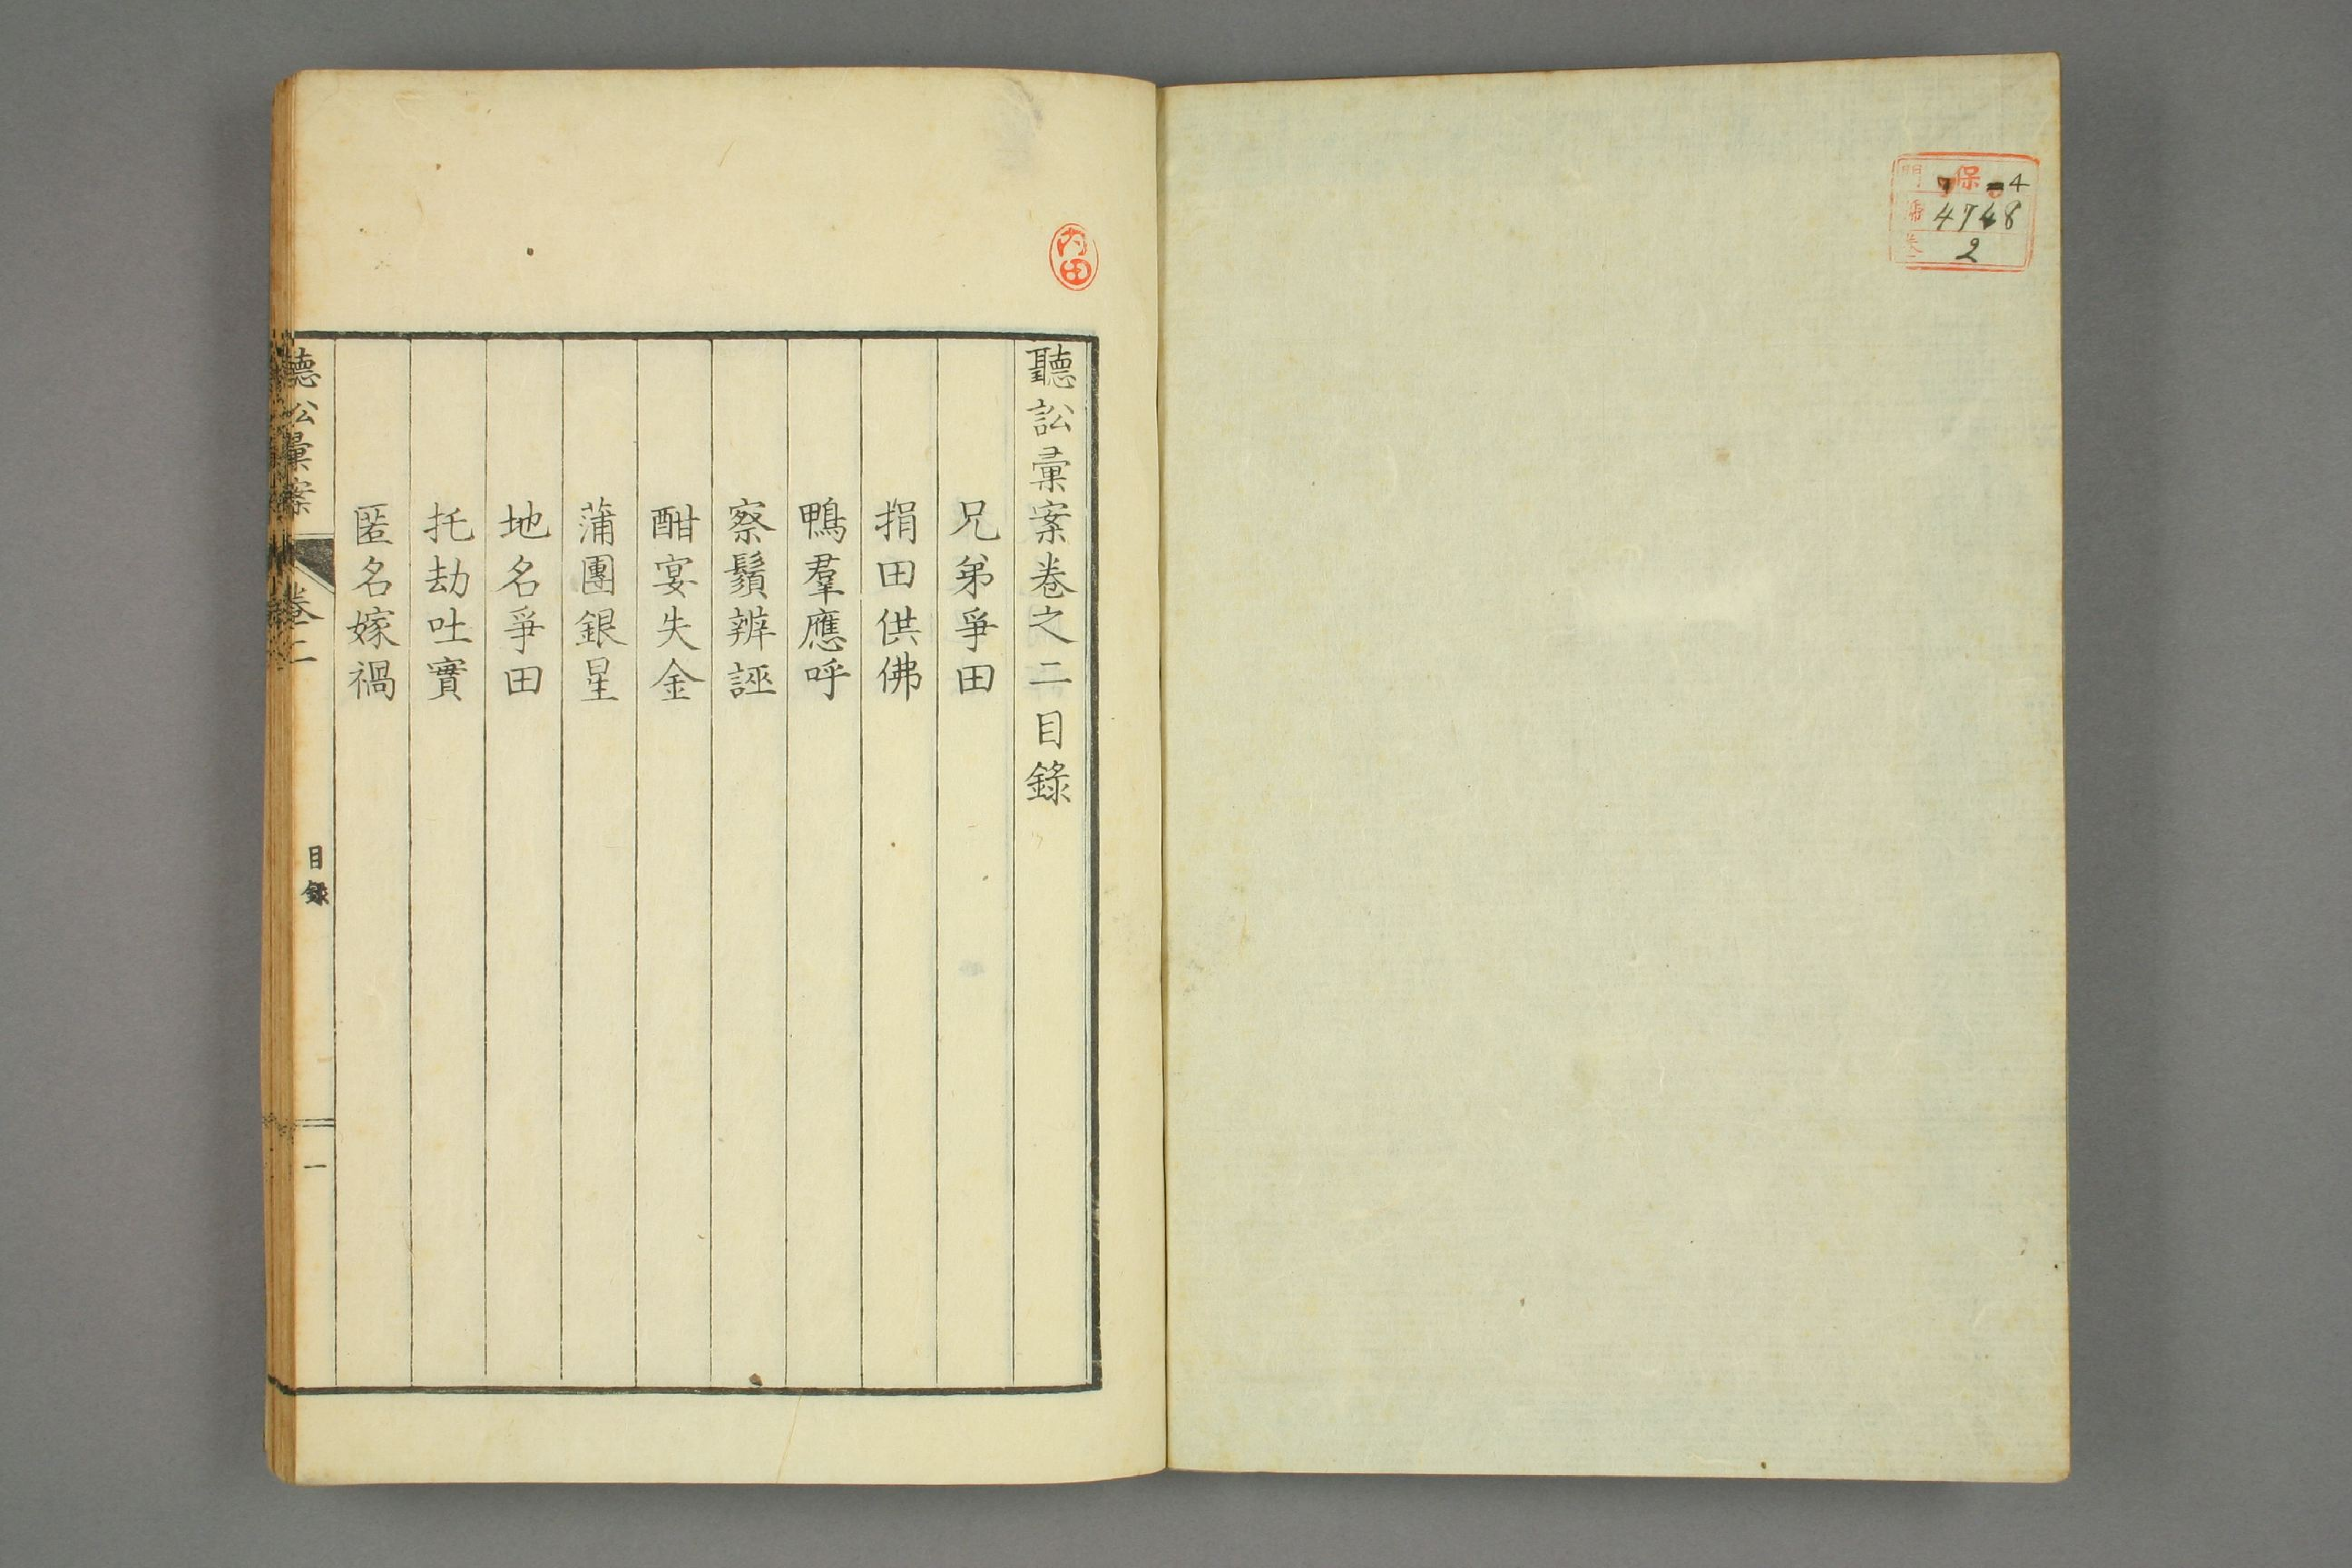 門 保 4
號 4748
卷 2
内田
聽訟彙案卷之二目錄
兄弟爭田
捐田供佛
鴨羣應呼
察鬚辨誣
酣宴失金
蒲團銀星
地名爭田
托劫吐實
匿名嫁禍
聽訟彙案 卷二 目錄 一